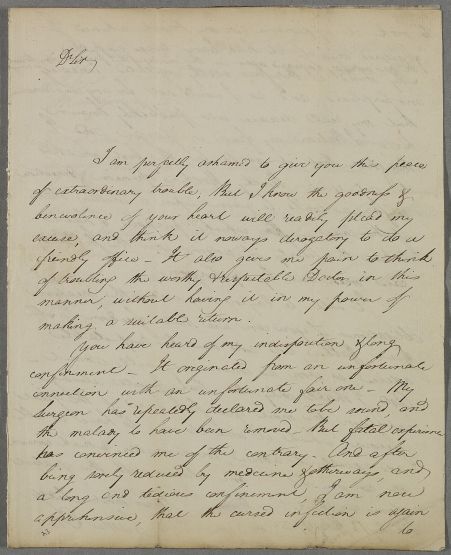 Dr Sir,
I am perfectly ashamed to give you this peece
of extraordinary trouble, But I know the goodness &
benevolence of your heart will readily plead my
excuse, and think it noways derogatory to do a
friendly office – It also gives me pain to think
of troubling the worthy & respectable Doctor in this
manner, without having it in my power of
making a suitable return.
You have heard of my indisposition & long
confinement – It originated from an unfortunate
connection with an unfortunate fair one – My
Surgeon has repeatedly declared me to be sound, and
the malady to have been removed – But fatal experience
has convinced me of the contrary. And after
being sorely reduced by medicine & otherways, and
a long and tedious confinement, I am now
apprehensive, that the cursed infection is again
to